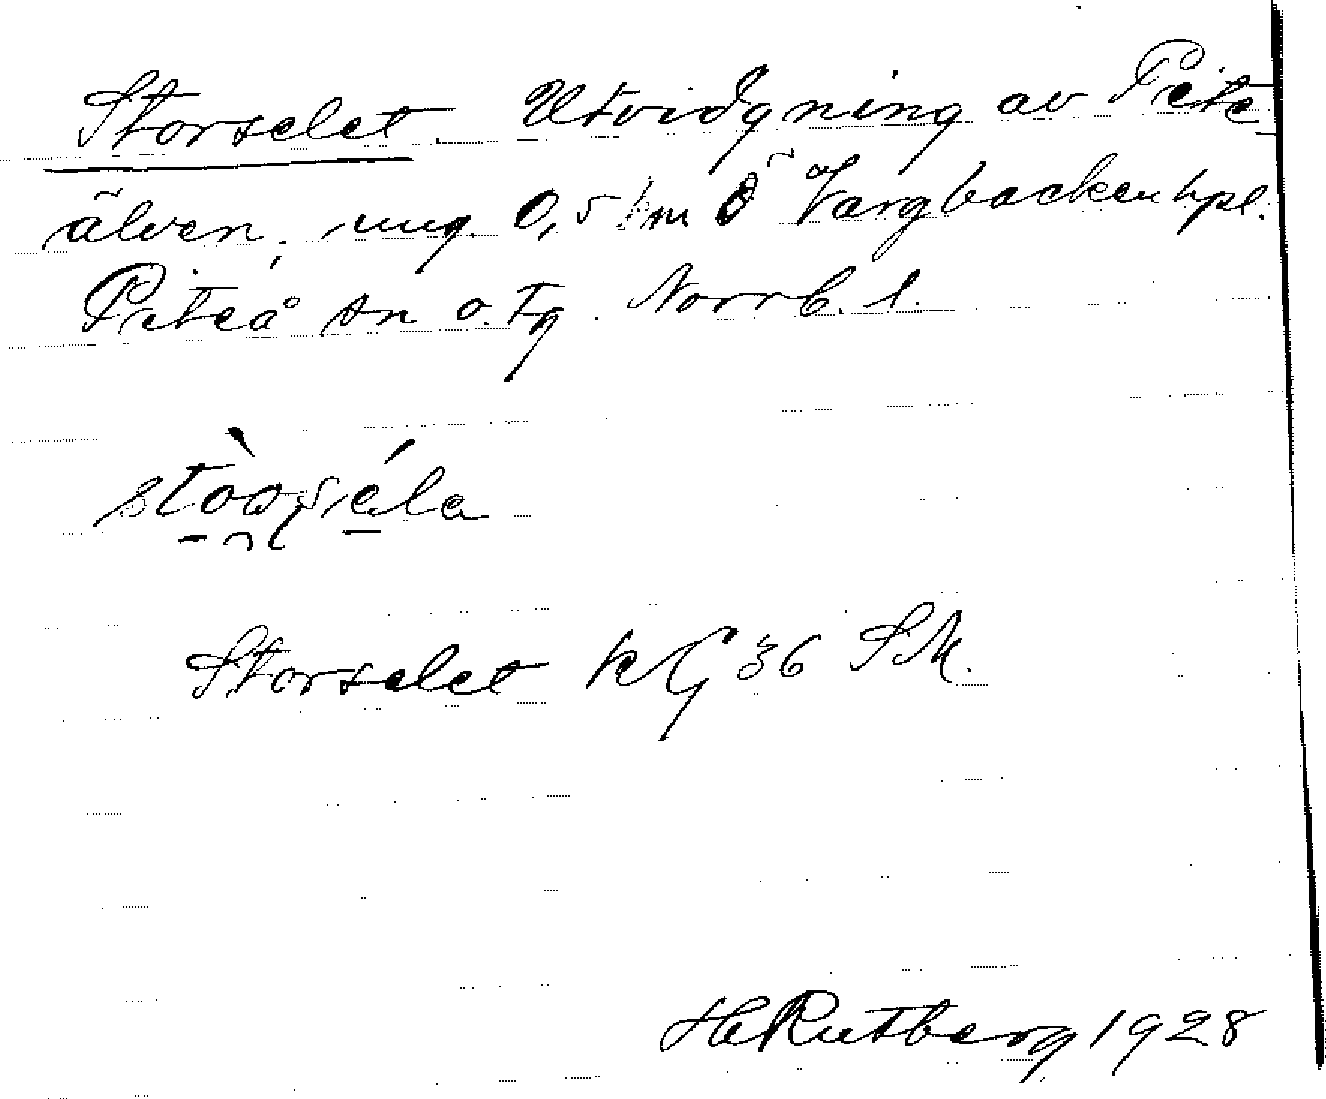 Storselet. Utvidgning av Pite
älven, ung. 0,5 km Ö Vargbacken hpl.
Piteå sn o. tg. Norrb. l.
Storselet kG 36 SK.
H Rutberg 1928